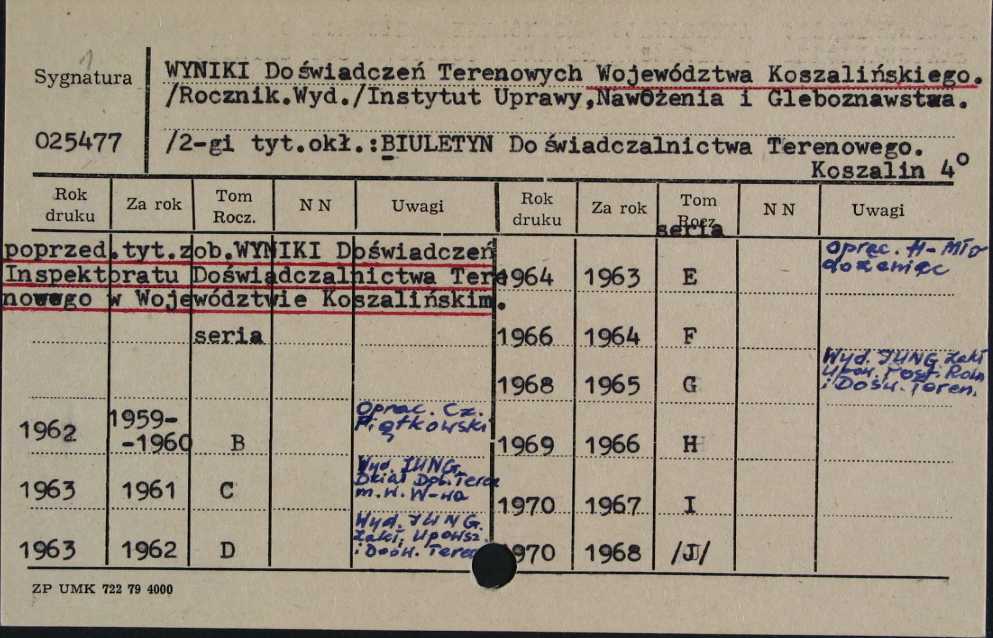 Sygnatura
WYNIKI Doświadczeń Terenowych Województwa Koszalińskiego.
/Rocznik.Wyd./Instytut Uprawy,Nawożenia i Gleboznawstwa.
025477
/2-gi tyt.okł.:BIULETYN Doświadczalnictwa Terenowego.
Koszalin 4°
Rok druku Za rok Tom Rocz. N N Uwagi
poprzed.tyt.zob.WYNIKI Doświadczeń
Inspektoratu Doświadczalnictwa Tere
nowego w Województwie Koszalińskim.
seria
1962 1959-
-1960 B Oprac. Cz.
Piątkowski
1963 1961 C Wyd. IUNG.
Dział Doś. Tere
m. w. W-wa
1963 1962 D Wyd. IUNG.
Zakł. Upowsz.
i Dośw. Teren
Rok druku Za rok Tom Rocz. N N Uwagi
seria
1964 1963 E Oprac. H. Mło
dozeniec
1966 1964 F
1968 1965 G Wyd. IUNG Zakł
Upow. Post. Roln
i Dośw. Teren.
1969 1966 H
1970 1967 I
1970 1968 /J/
ZP UMK 722 79 4000